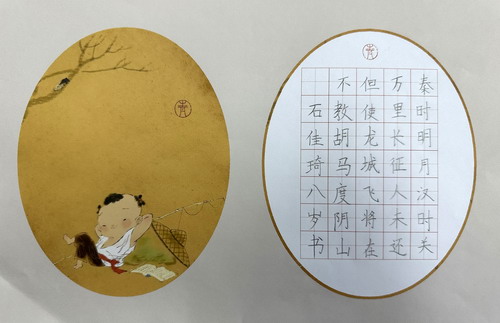 秦时明月汉时关
万里长征人未还
但使龙城飞将在
不教胡马度阴山
石佳琦八岁书